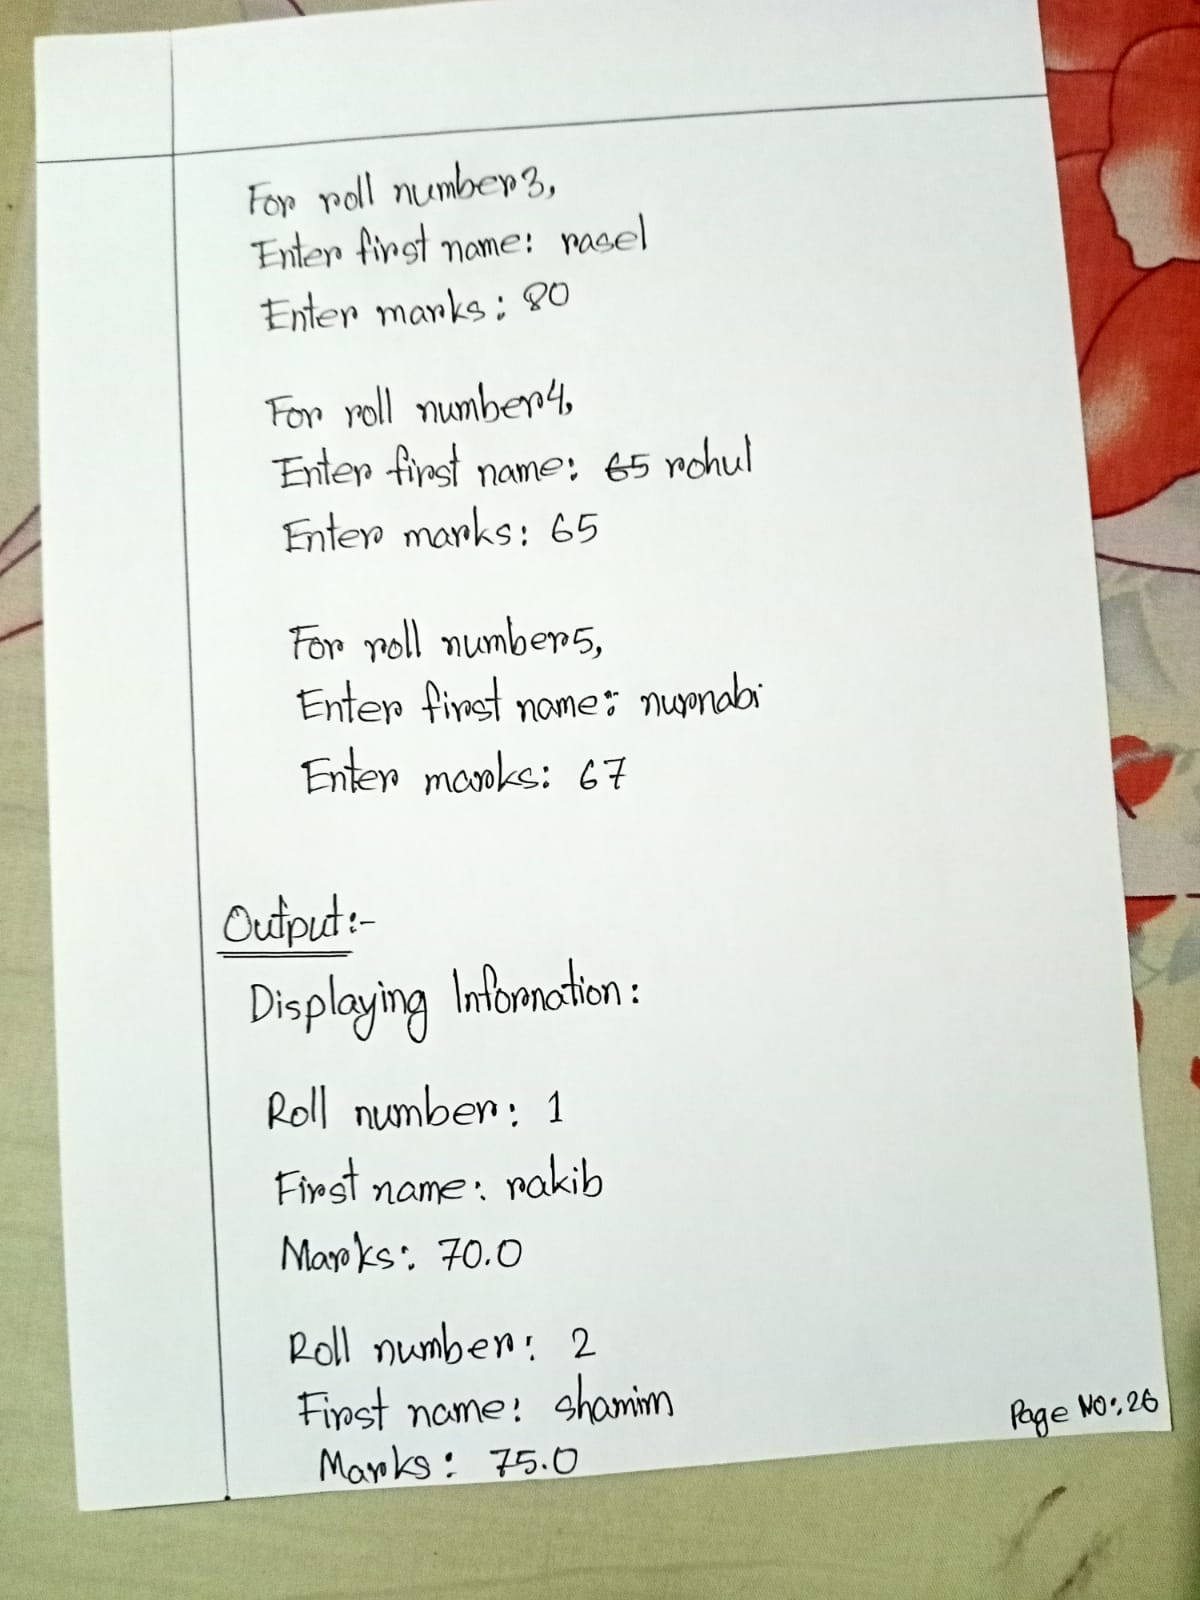 For roll number3,
Enter first name: rasel
Enter marks: 80
For roll number4,
Enter first name: 65 rohul
Enter marks: 65
For roll number5,
Enter first name: nurnabi
Enter marks: 67
Output:-
Displaying Information:
Roll number: 1
First name: rakib
Marks: 70.0
Roll number: 2
First name: shamim
Marks: 75.0
Page No: 26